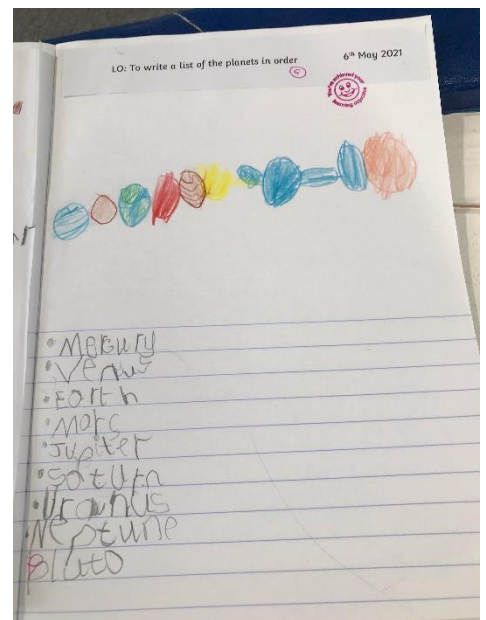 LO: To write a list of the planets in order
6th May 2021
You've achieved your learning objective
• Mercury
• Venus
• Earth
• Mars
• Jupiter
• Saturn
• Uranus
• Neptune
Pluto